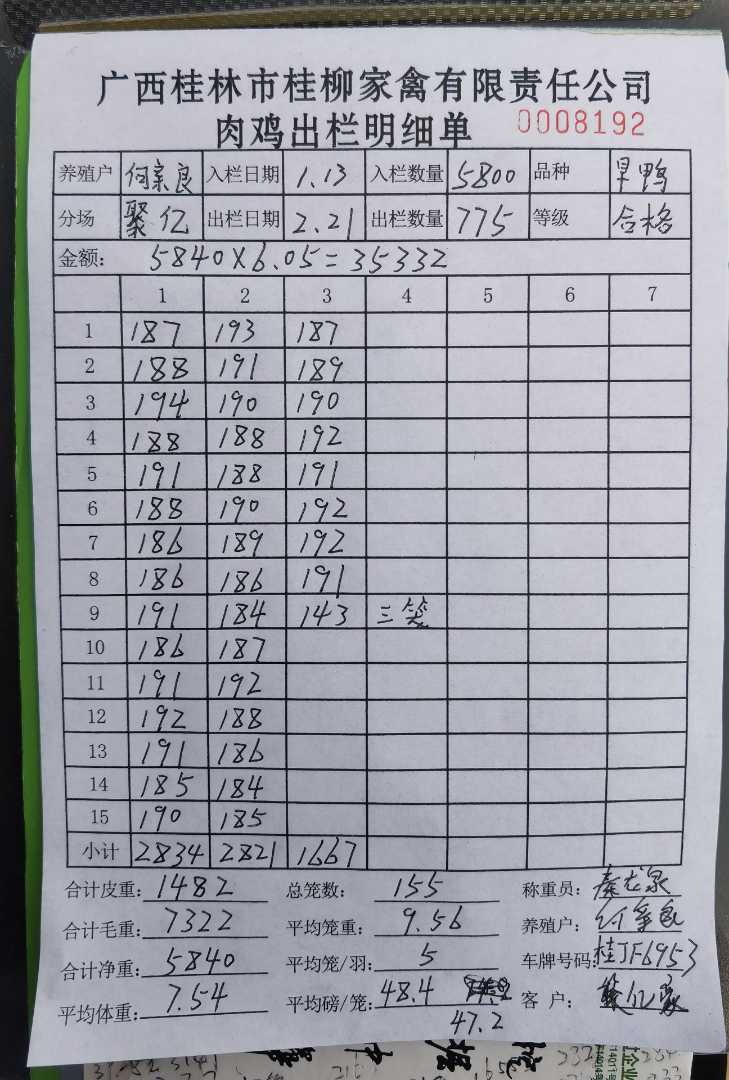 广西桂林市桂柳家禽有限责任公司
肉鸡出栏明细单 0008192
养殖户 何宗良 入栏日期 1.13 入栏数量 5800 品种 旱鸭
分场 聚亿 出栏日期 2.21 出栏数量 775 等级 合格
金额: 5840×6.05=35332
1 2 3 4 5 6 7
1 187 193 187
2 188 191 189
3 194 190 190
4 188 188 192
5 191 188 191
6 188 190 192
7 186 189 192
8 186 186 191
9 191 184 143 三笼
10 186 187
11 191 192
12 192 188
13 191 186
14 185 184
15 190 185
小计 2834 2821 1667
合计皮重: 1482 总笼数: 155 称重员: 秦龙泉
合计毛重: 7322 平均笼重: 9.56 养殖户:
合计净重: 5840 平均笼/羽: 5 车牌号码: 桂JF6953
平均体重: 7.54 平均磅/笼: 48.4 客户:
47.2